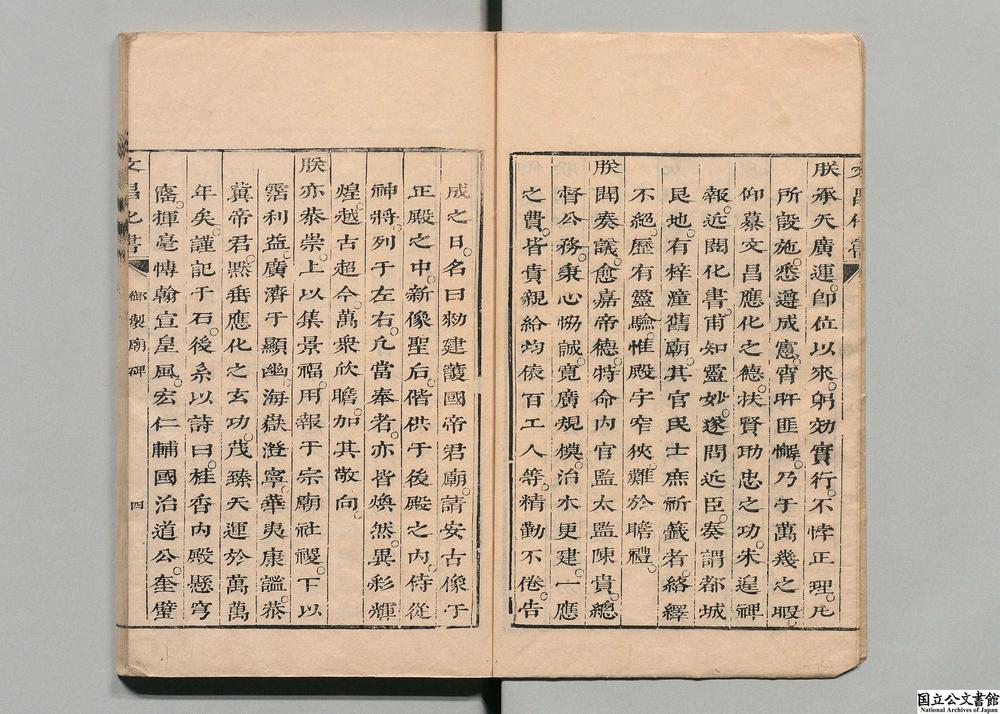 朕承天廣運。卽位以來。躬効實行。不悖正理。凡
所設施。悉遵成憲。宵旰匪懈。乃于萬幾之暇。
仰慕文昌應化之德。扶賢助忠之功。未遑禆
報。近閱化書。甫知靈妙。遂問近臣。奏謂都城
艮地。有梓潼舊廟。其官民士庶祈籤者。絡繹
不絕。歷有靈驗。惟殿宇窄狹。難於瞻禮。
朕聞奏議。愈嘉帝德。特命內官監太監陳貴。總
督公務。秉心恊誠。寬廣規模。治木更建。一應
之費。皆貴親給均依百工人等。精勤不倦。告
成之日。名曰勑建護國帝君廟。請安古像于
正殿之中。新像聖后。偕供于後殿之內。侍從
神將。列于左右。凡當奉者。亦皆煥然。異彩輝
煌。越古超今。萬衆欣瞻。加其敬向。
朕亦恭崇。上以集景福。用報于宗廟社稷。下以
霑利益。廣濟于顯幽。海嶽澄寧。華夷康謐。恭
冀帝君。默垂應化之玄功。茂臻天運於萬萬
年矣。謹記于石。後系以詩曰。桂香內殿懸穹
窿。揮毫慱翰宣皇風。宏仁輔國治道公。奎璧
文昌化書
御製廟碑
四
国立公文書館
National Archives of Japan